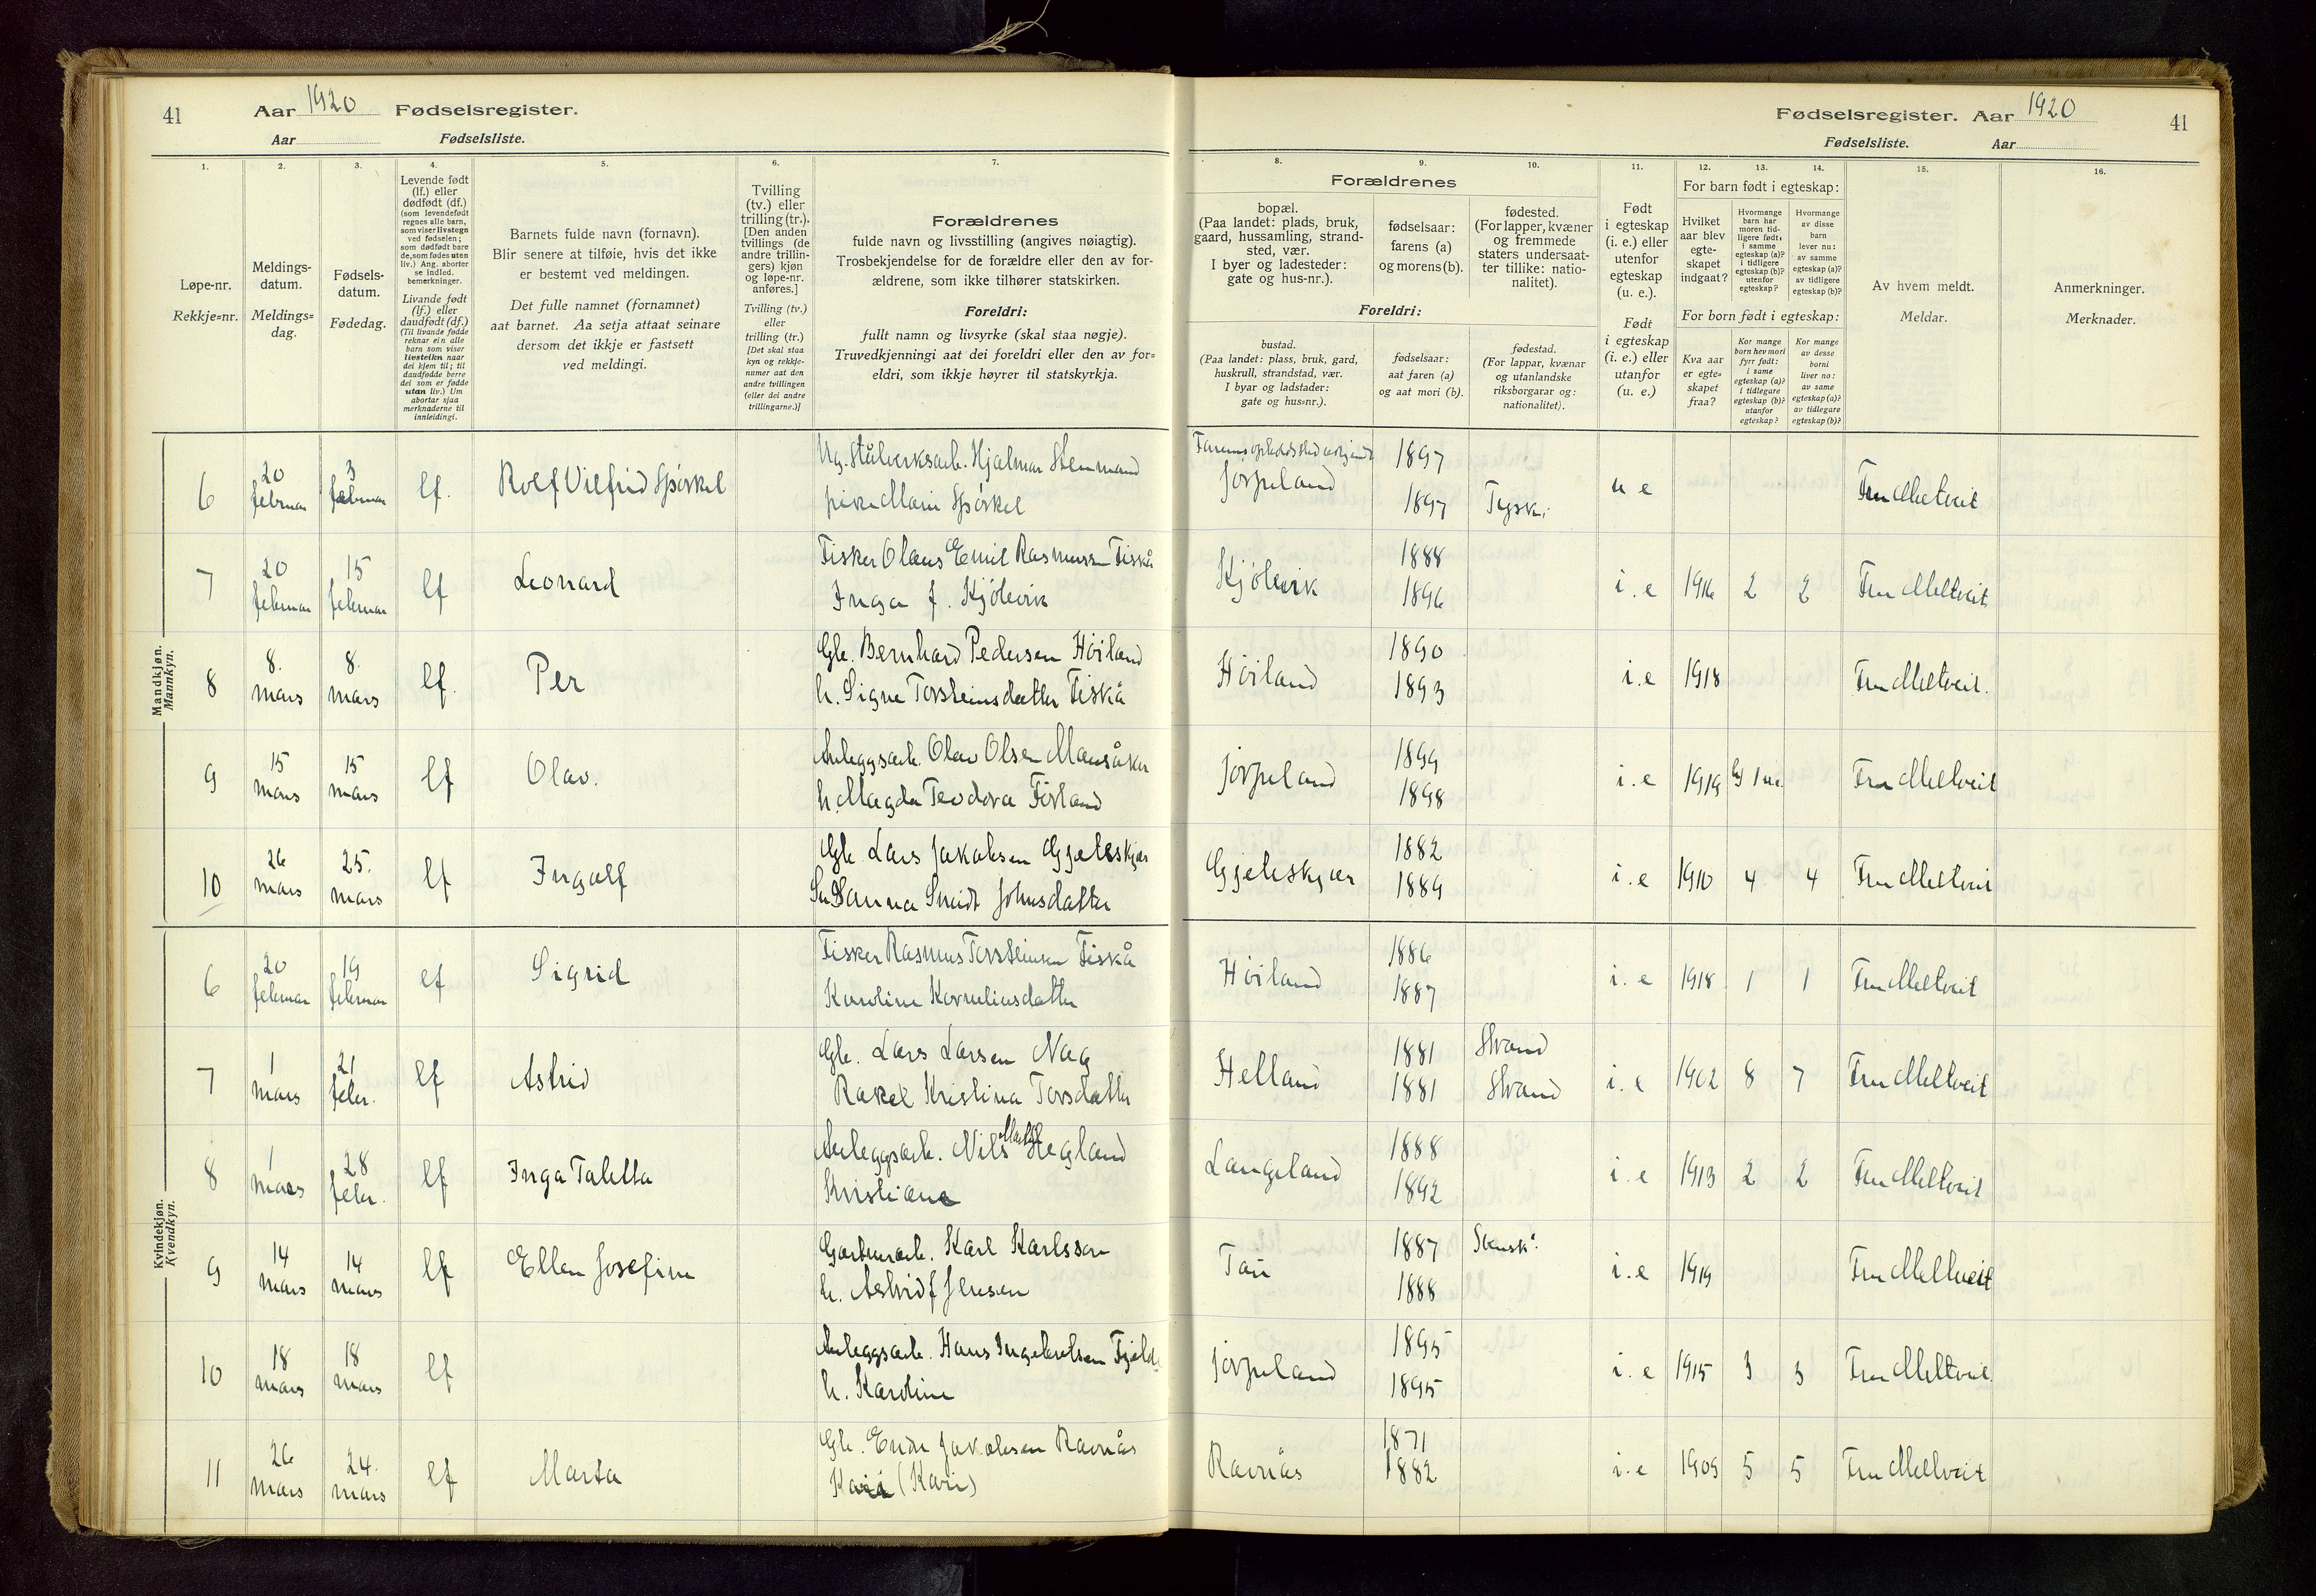 41
Aar 1920 Fødselsregister.
Aar Fødselsliste.
Fødselsregister. Aar 1920
41
Fødselsliste. Aar
1.
Løpe-nr.
Rekkje=nr.
2.
Meldings-
datum.
Meldings=
dag.
3.
Fødsels-
datum.
Fødedag.
4.
Levende født
(lf.) eller
dødfødt (df.)
(som levendefødt
regnes alle barn,
som viser livstegn
ved fødselen;
som dødfødt bare
de, som fødes uten
liv.) Ang. aborter
se indled.
bemerkninger.
Livande født
(lf.) eller
daudfødt (df.)
(Til livande fødde
reknar ein alle
barn som viser
livsteikn naar
dei kjem til; til
daudfødde berre
dei som er fødde
utan liv.) Um
abortar sjaa
merknaderne til
innleidingi.
5.
Barnets fulde navn (fornavn).
Blir senere at tilføie, hvis det ikke
er bestemt ved meldingen.
Det fulle namnet (fornamnet)
aat barnet. Aa setja attaat seinare
dersom det ikkje er fastsett
ved meldingi.
6.
Tvilling
(tv.) eller
trilling (tr.).
[Den anden
tvillings (de
andre trillin-
gers) kjøn
og løpe-nr.
anføres.]
Tvilling (tv.)
eller
trilling (tr.)
[Det skal staa
kyn og rekkje-
numer aat den
andre tvillingen
(eller dei andre
trillingarne.)]
7.
Forældrenes
fulde navn og livsstilling (angives nøiagtig).
Trosbekjendelse for de forældre eller den av for-
ældrene, som ikke tilhører statskirken.
Foreldri:
fullt namn og livsyrke (skal staa nøgje).
Truvedkjenningi aat dei foreldri eller den av for=
eldri, som ikkje høyrer til statskyrkja.
8.
9.
10.
Forældrenes
bopæl.
(Paa landet: plads, bruk,
gaard, hussamling, strand-
sted, vær.
I byer og ladesteder:
gate og hus-nr.).
fødselsaar:
farens (a)
og morens (b).
fødested.
(For lapper, kvæner
og fremmede
staters undersaat-
ter tillike: natio-
nalitet).
Foreldri:
bustad.
(Paa landet: plass, bruk, gard,
huskrull, strandstad, vær.
I byar og ladstader:
gate og hus=nr.).
fødselsaar:
aat faren (a)
og aat mori (b).
fødestad.
(For lappar, kvænar
og utanlandske
riksborgarar og:
nationalitet).
11.
Født
i egteskap
(i. e.) eller
utenfor
egteskap
(u. e.).
Født
i egteskap
(i. e.) eller
utanfor
(u. e.)
12.
13.
14.
For barn født i egteskap:
Hvilket
aar blev
egte-
skapet
indgaat?
Hvormange
barn har
moren tid-
ligere født:
i samme
egteskap (a)?
i tidligere
egteskap (b)?
utenfor
egteskap?
Hvormange
av disse
barn
lever nu:
av samme
egteskap (a)?
av tidligere
egteskap (b)?
For born født i egteskap:
Kva aar
er egte=
skapet
fraa?
Kor mange
born hev mori
fyrr født:
i same
egteskap (a)?
i tidlegare
egteskap (b)?
utanfor
egteskap?
Kor mange
av desse
borni
liver no:
av same
egteskap (a)?
av tidlegare
egteskap (b)?
15.
Av hvem meldt.
Meldar.
16.
Anmerkninger.
Merknader.
Mandkjøn.
Mannkyn.
6 20 februar 3 februar lf. Rolf Vilfrid Spörkel Ug. Stålverksarb. Hjalmar
pike Marie Spörkel
Jørpeland 1897 1897 Tysk. u e Fru Meltveit
7 20 februar 15 februar lf Leonard Fisker Olaus Emil Rasmussen Fiskå
Inga f. Kjölevik
Kjölevik 1888 1896 i.e 1916 2 2 Fru Meltveit
8 8. mars 8. mars lf. Per Gbr. Bernhard Pedersen Höiland
h. Signe Torsteinsdatter Fiskå
Höiland 1890 1893 i.e 1918 Fru Meltveit.
9 15 mars 15 mars lf Olav. Anleggsarb. Olav Olsen
h. Magda Teodora Förland
Jørpeland 1899 1898 i.e 1919 b) 1 u.e. Fru Meltveit
10 26 mars 25. mars lf Ingolf Gbr. Lars Jakobsen Gjeleskjær
Susanna Smidt Johnsdatter
Gjeleskjær 1882 1889 i.e 1910 4 4 Fru Meltveit
Kvindekjøn.
Kvendkyn.
6 20 februar 19 februar lf Sigrid Fisker Rasmus Torsteinsen Fiskå
Karoline Korneliusdatter
Höiland 1886 1887 i.e 1918 1 1 Fru Meltveit
7 1 mars 21 febr. lf Astrid Gbr. Lars Larsen Nag
Rakel Kristina Torsdatter
Helland 1881 1881 Strand Strand i.e 1902 8 7 Fru Meltveit
8 1 mars 28 febr. lf Inga Taletta Anleggsarb. Nils Hegland
Kristiane
Langeland 1888 1892 i.e 1913 2 2 Fru Meltveit
9 14 mars 14 mars lf Ellen Josefine Gartnerarb. Karl Karlsson
h. Astrid f Jensen
Tau 1887 1888 Svensk. i.e 1919 Fru Meltveit
10 18 mars 18 mars lf Anleggsarb. Hans Ingebretsen Fjelde
h. Karoline
Jørpeland 1895 1895 i.e 1915 3 3 Fru Meltveit
11 26 mars 24. mars lf Marta Gbr. Endre Jakobsen Ravnås
Kari (Kari)
Ravnås 1871 1882 i.e 1909 5 5 Fru Meltveit